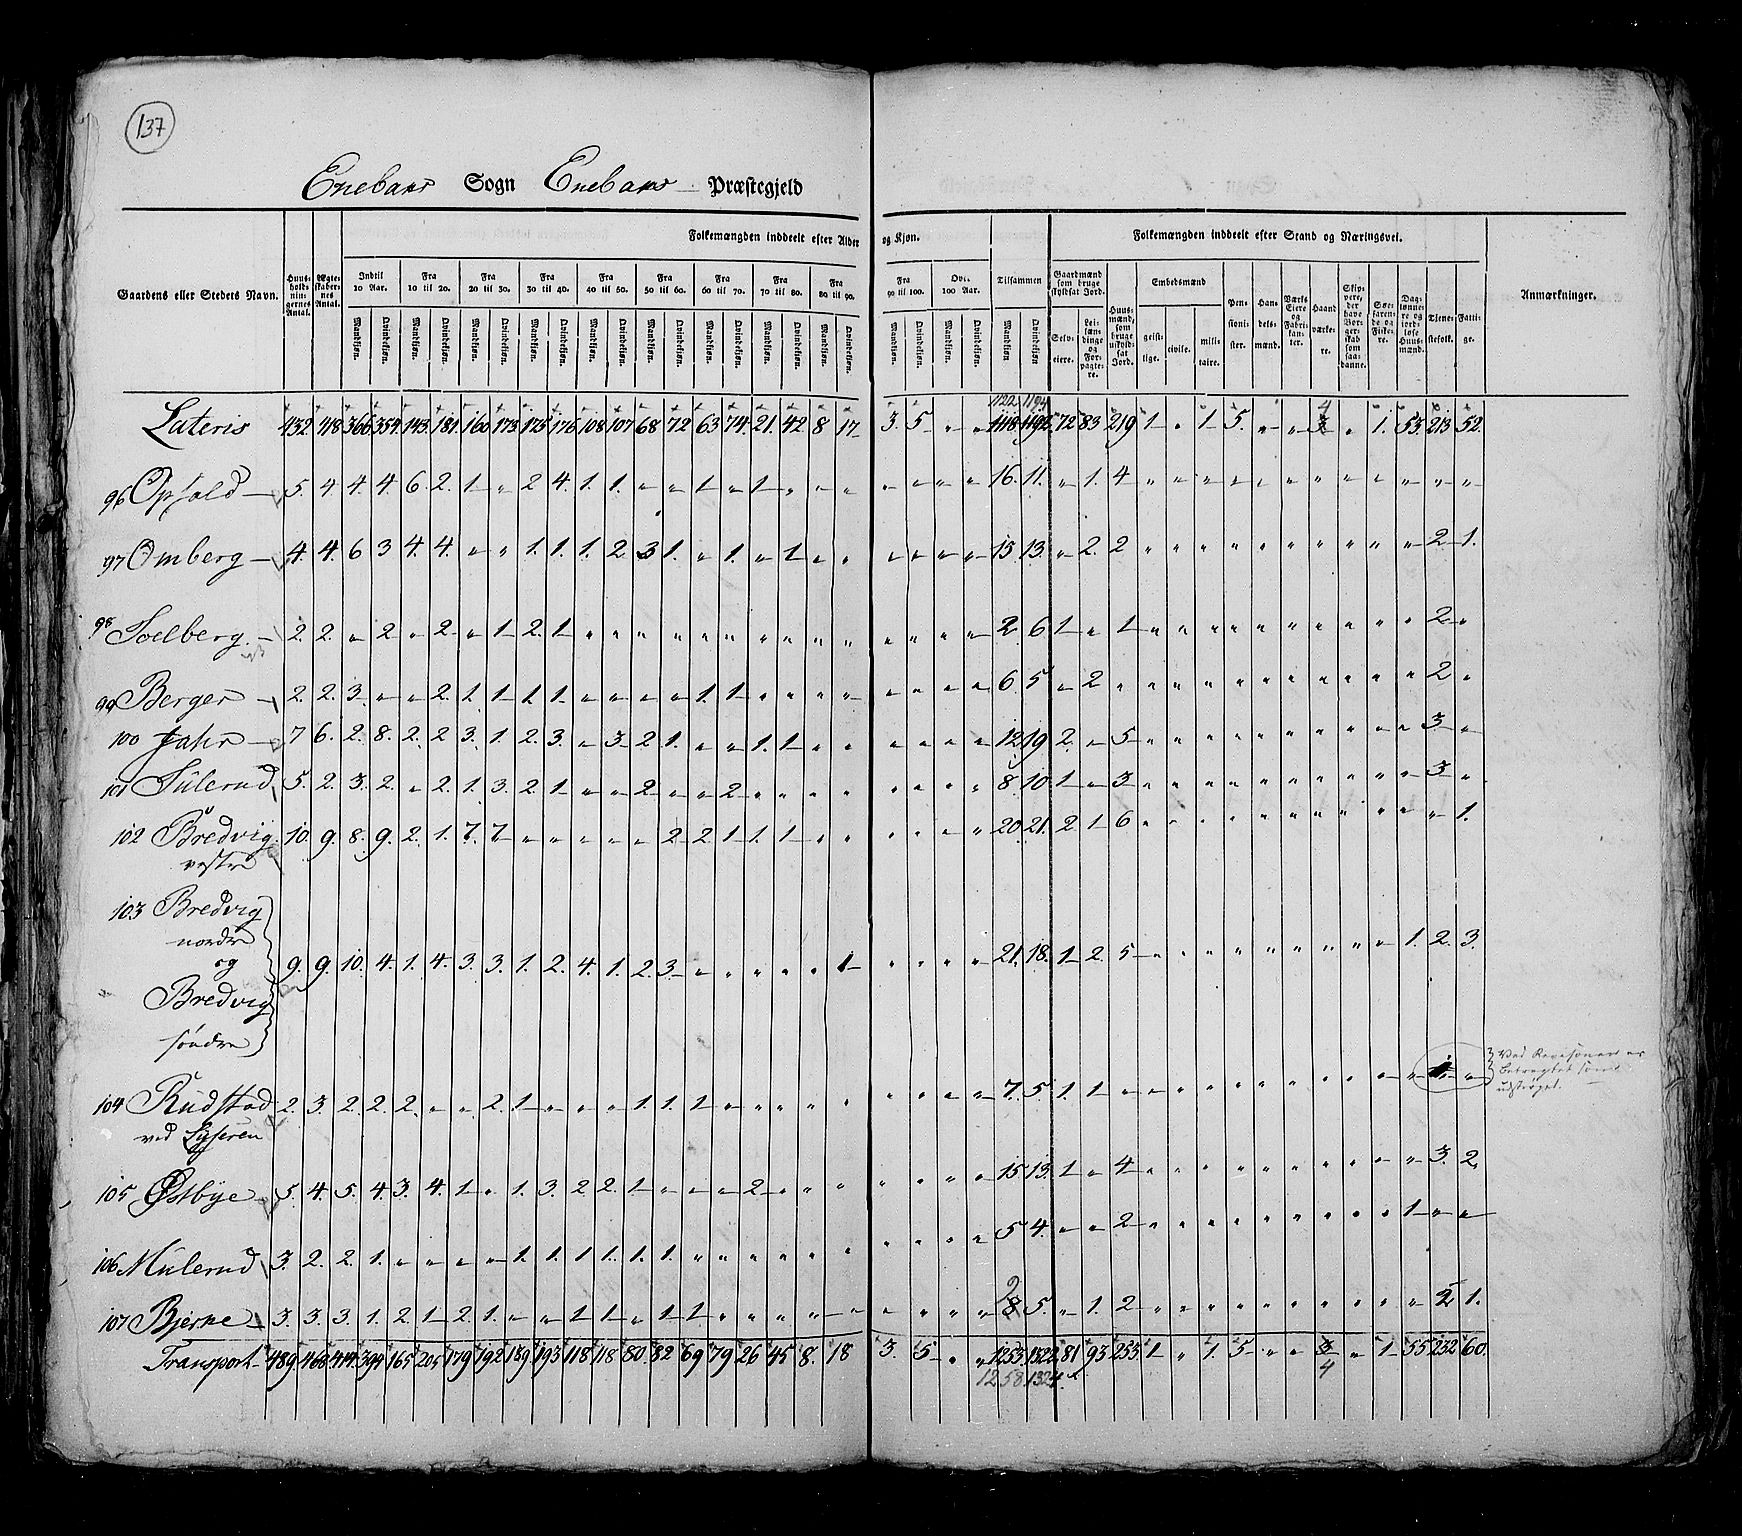 137
Enebaks Sogn Enebaks Præstegjeld
Folkemængden inddeelt efter Alder og Kjøn. Folkemængden inddeelt efter Stand og Næringsvei.
Gaardens eller Stedets Navn. Huusholdningernes Antal. Ægteskabernes Antal. Indtil 10 Aar. Fra 10 til 20. Fra 20 til 30. Fra 30 til 40. Fra 40 til 50. Fra 50 til 60. Fra 60 til 70. Fra 70 til 80. Fra 80 til 90. Fra 90 til 100. Over 100 Aar. Tilsammen Gaardmænd som bruge skyldsat Jord. Huusmænd, som bruge uskyldsat Jord. Embedsmænd Pensionister. Handelsmænd. Værks Eiere og Fabrikanter. Haandværkere. Skippere, der have Borgerskab som saadanne. Søefarende og Fiskere. Daglønnere og jordløse Huusmænd. Tjenestefolk. Fattige. Anmærkninger.
Mandkjøn. Qvindekjøn. Mandkjøn. Qvindekjøn. Mandkjøn. Qvindekjøn. Mandkjøn. Qvindekjøn. Mandkjøn. Qvindekjøn. Mandkjøn. Qvindekjøn. Mandkjøn. Qvindekjøn. Mandkjøn. Qvindekjøn. Mandkjøn. Qvindekjøn. Mandkjøn. Qvindekjøn. Mandkjøn. Qvindekjøn. Mandkjøn. Qvindekjøn. Selveiere. Leilændinge og Forpagtere. geistlige. civile. militaire.
1122 1194 4
Lateris 432 418 366 354 143 181 160 173 175 176 108 107 68 72 63 74 21 42 8 17 3 5 „ „ 1118 1192 72 83 219 1 „ 1 5 „ „ 3 „ 1 53 213 52
96 Opsald 5 4 4 4 6 2 1 „ 2 4 1 1 „ „ 1 „ 1 „ „ „ „ „ „ „ 16 11 „ 1 4 „ „ „ „ „ „ „ „ „ „ „ „
97 Omberg 4 4 6 3 4 4 „ „ 1 1 1 2 3 1 „ 1 „ 1 „ „ „ „ „ „ 15 13 „ 2 2 „ „ „ „ „ „ „ „ „ „ 2 1
98 Soelberg 2 2 „ 2 „ 2 „ 1 2 1 „ „ „ „ „ „ „ „ „ „ „ „ „ „ 2 6 1 „ 1 „ „ „ „ „ „ „ „ „ „ 2 „
99 Berger 2 2 3 „ „ 2 1 1 1 1 „ „ „ „ 1 1 „ „ „ „ „ „ „ „ 6 5 „ 2 „ „ „ „ „ „ „ „ „ „ „ 2 „
100 Jahr 7 6 2 8 2 2 3 1 2 3 „ 3 2 1 „ „ 1 1 „ „ „ „ „ „ 12 19 2 „ 5 „ „ „ „ „ „ „ „ „ „ 3 „
101 Sulerud 5 2 3 2 „ 2 1 3 2 1 „ „ 2 „ „ 2 „ „ „ „ „ „ „ „ 8 10 1 „ 3 „ „ „ „ „ „ „ „ „ „ 3 „
102 Bredvig 10 9 8 9 2 1 7 7 „ „ „ „ „ 2 2 1 1 1 „ „ „ „ „ „ 20 21 2 1 6 „ „ „ „ „ „ „ „ „ „ „ 1
vestre
103 Bredvig
nordre
og 9 9 10 4 1 4 3 3 1 2 4 1 2 3 „ „ „ „ „ 1 „ „ „ „ 21 18 1 2 5 „ „ „ „ „ „ „ „ „ 1 2 3
Bredvig
söndre
104 Rudstad 2 3 2 2 2 „ „ 2 1 „ „ „ 1 1 1 „ „ „ „ „ „ „ „ „ 7 5 1 1 „ „ „ „ „ „ „ „ „ „ „ 1 „ Ved Revisionen er
betragtet som
udströget.
ved Lyseren
105 Østbye 5 4 5 4 3 4 1 „ 1 3 2 2 1 „ „ „ 2 „ „ „ „ „ „ „ 15 13 1 „ 4 „ „ „ „ „ „ „ „ „ „ 3 2
106 Mulerud 3 2 2 1 „ „ „ „ 1 1 1 1 1 1 „ „ „ „ „ „ „ „ „ „ 5 4 „ „ 2 „ „ „ „ „ „ „ „ „ 1 „ „
107 Bjerke 3 3 3 1 2 1 2 1 „ „ 1 1 „ 1 1 „ „ „ „ „ „ „ „ „ 8 9 5 „ 1 2 „ „ „ „ „ „ „ „ „ „ 2 1
Transport 489 468 414 394 165 205 179 192 189 193 118 118 80 82 69 79 26 45 8 18 3 5 „ „ 1253 1322 81 93 253 1 „ 1 5 „ „ 3 „ 1 55 232 60
1258 1324 4